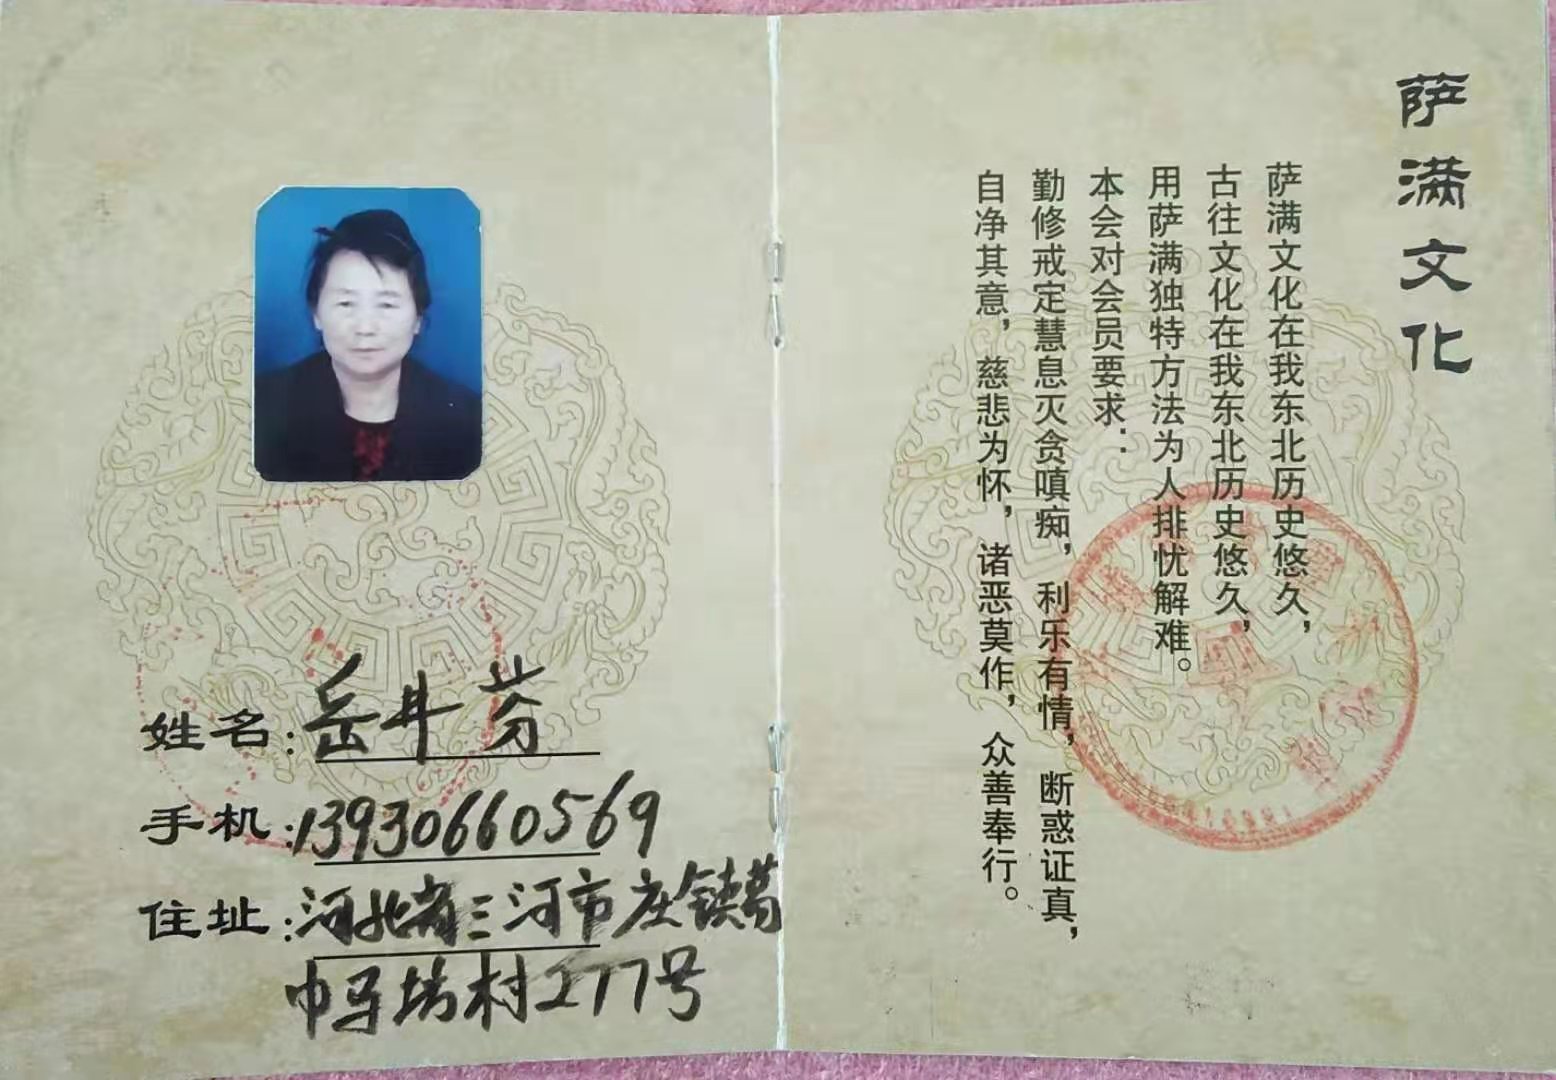 姓名:岳井芬
手机:13930660569
住址:河北省三河市
277号
萨满文化
萨满文化在我东北历史悠久,
古往文化在我东北历史悠久,
用萨满独特方法为人排忧解难。
本会对会员要求:
勤修戒定慧息灭贪嗔痴,利乐有情,断惑证真,
自净其意,慈悲为怀,诸恶莫作,众善奉行。